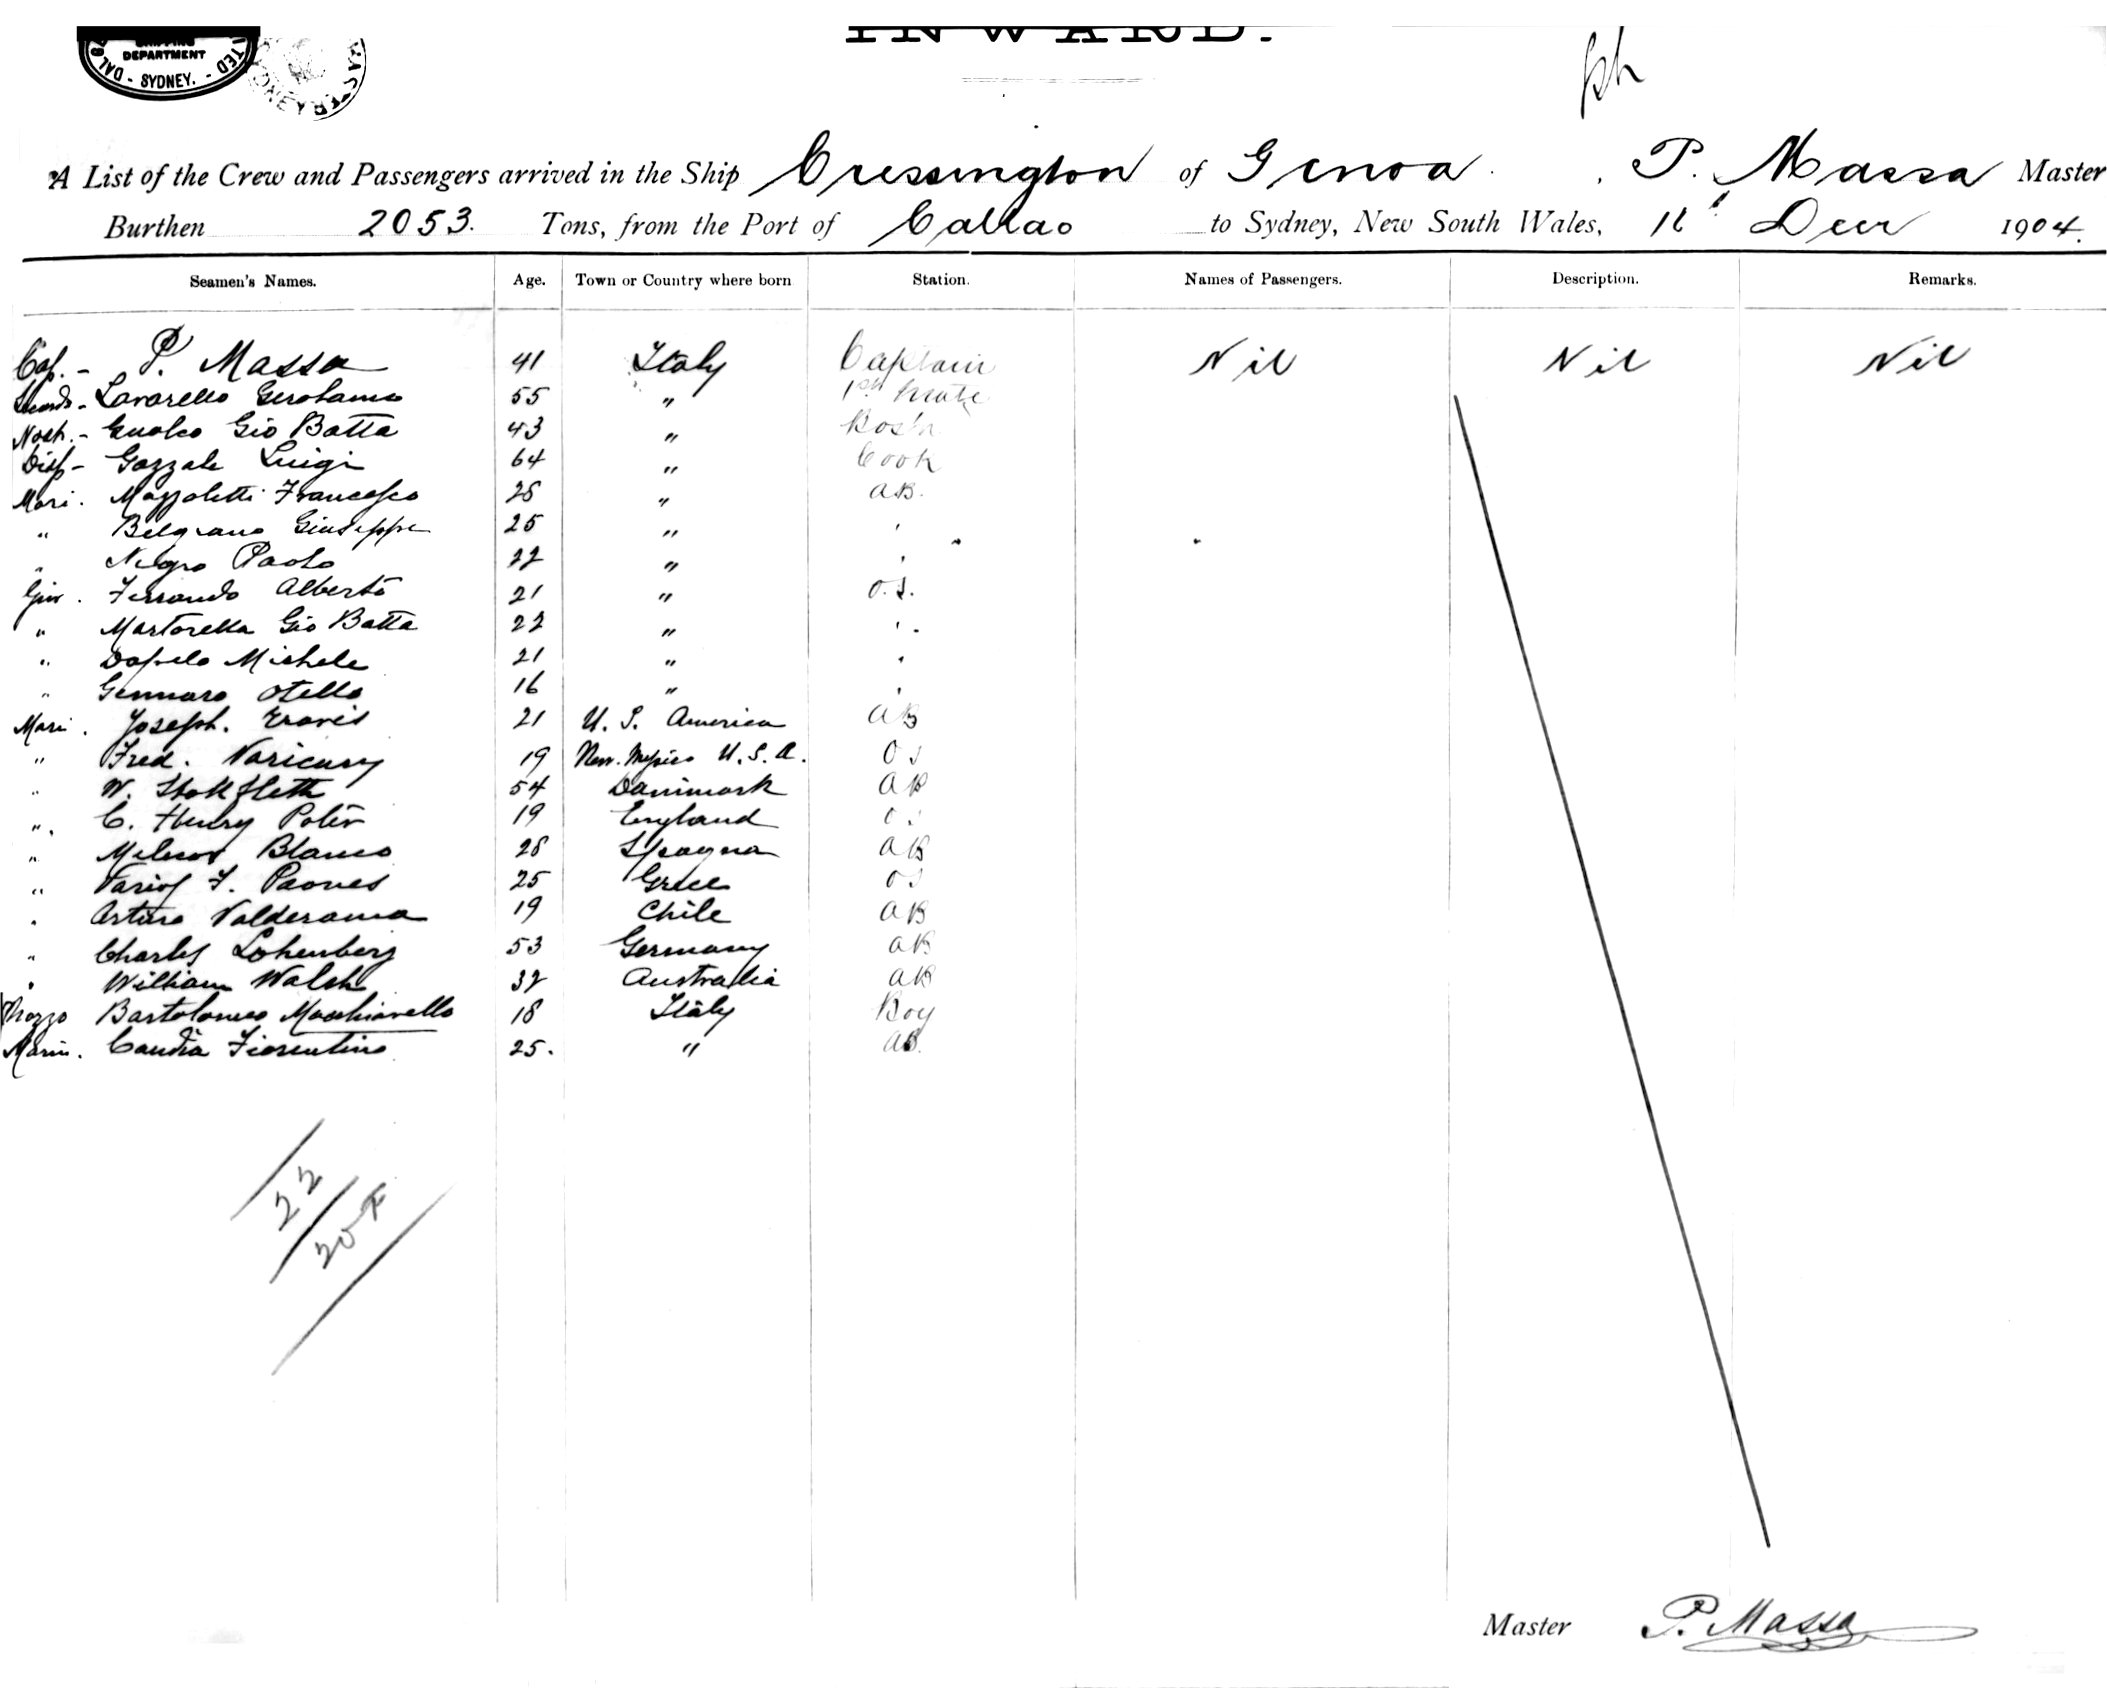 INWARD.
DEPARTMENT
SYDNEY.
A List of the Crew and Passengers arrived in the Ship Cressington of Genoa. P. Massa Master
Burthen 2053. Tons, from the Port of Callao to Sydney, New South Wales, Decr 1904.
Seamen's Names. Age. Town or Country where born Station. Names of Passengers. Description. Remarks.
Cap. - P. Massa 41 Italy Captain Nil Nil Nil
Lavarello Gerolamo 55 " 1st Mate
Nosh. - Gualco Gio Batta 43 " Bosn
Disp - Gazzale Luigi 64 " Cook
Mari. Mazzoletti Francesco 25 " AB.
" Belgrano Giuseppe 25 "
" Negro Paolo 22 "
Giov. Ferrando Alberto 21 " O.S.
" Martorella Gio Batta 22 "
" Dapelo Michele 21 "
" Gennaro Otello 16 "
Mari. Joseph. 21 U. S. America AB
" Fred. 19 New. Mexico U. S. A. OS
" W. 54 Danimark AB
" C. Henry Poter 19 England OS
" Blanco 28 Spagna AB
" F. 25 Grece OS
" Arturo Valderama 19 Chile AB
" Charles Lohenberg 53 Germany AB
" William Walsh 32 Australia AB
Mozzo Bartolomeo Macchiavello 18 Italy Boy
Marin. Candia Fiorentino 25. " AB.
22
20
Master P. Massa